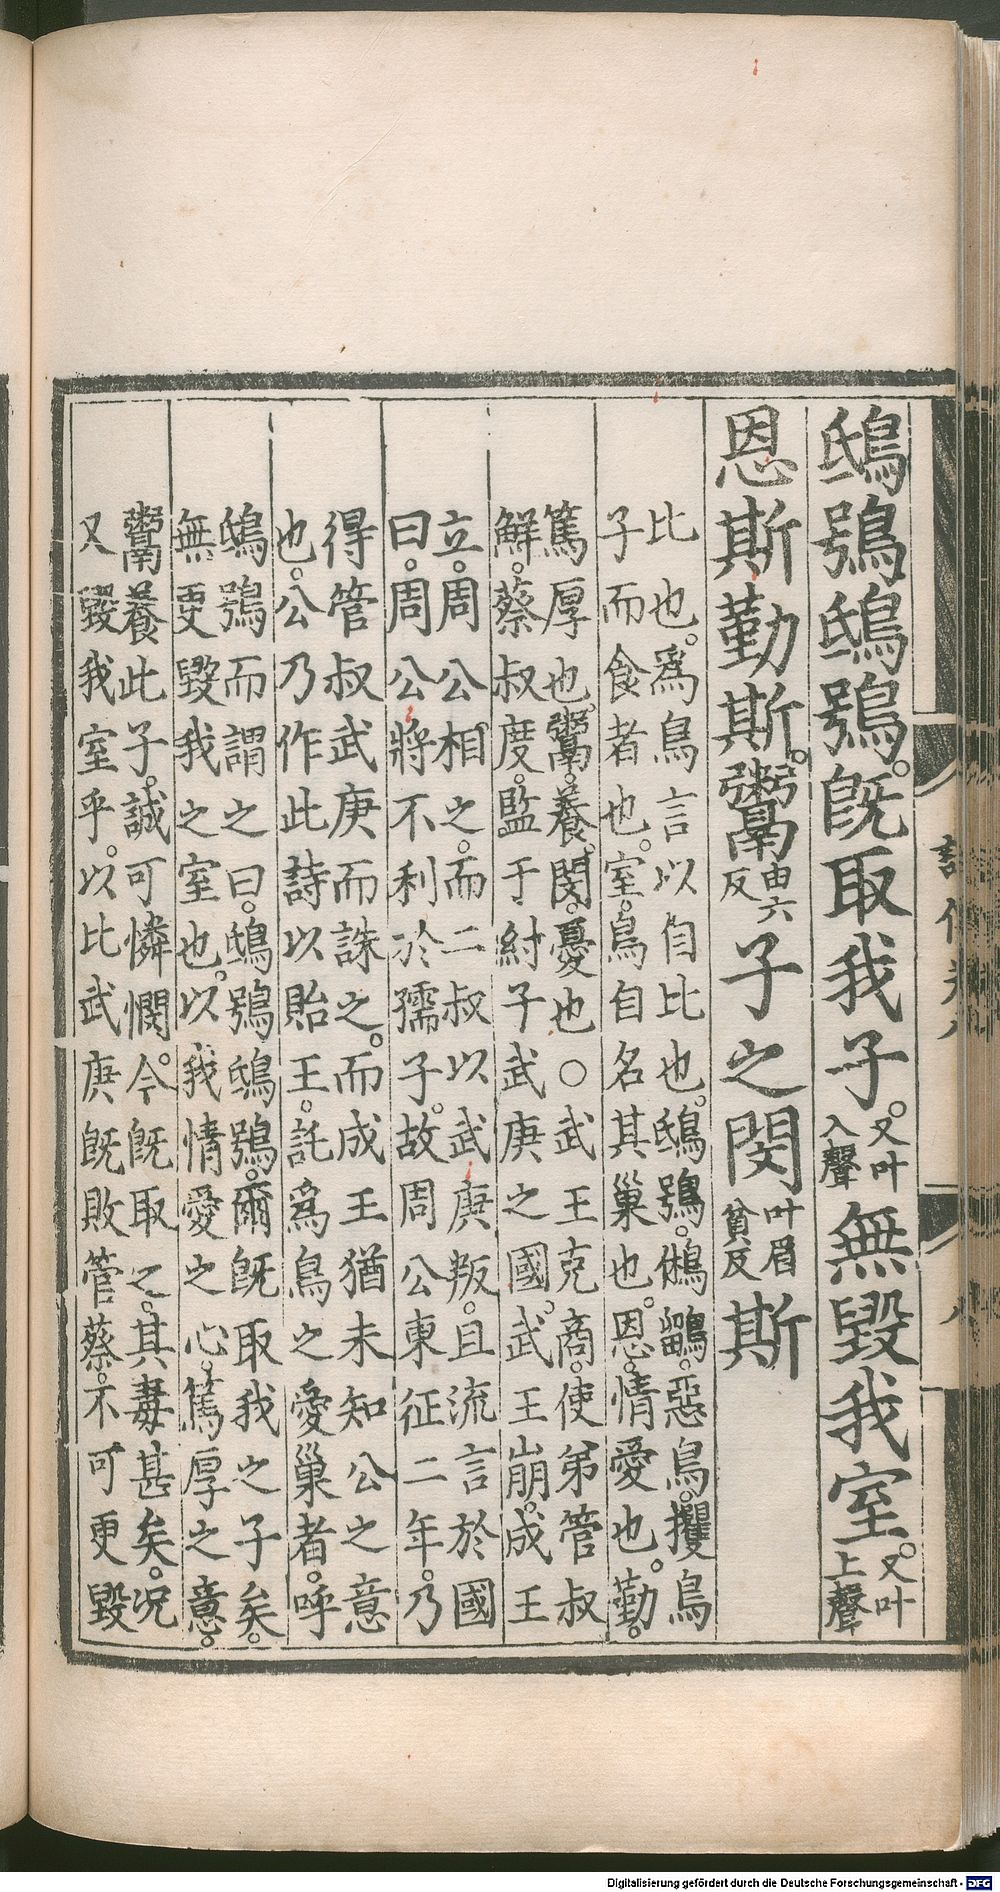 鴟鴞鴟鴞。既取我子。又叶入聲無毀我室。又叶上聲
恩斯勤斯。鬻由六反子之閔叶眉貧反斯
比也。爲鳥言以自比也。鴟鴞。鵂鶹。惡鳥。攫鳥
子而食者也。室。鳥自名其巢也。恩。情愛也。勤。
篤厚也。鬻。養。閔。憂也○武王克商。使弟管叔
鮮。蔡叔度。監于紂子武庚之國。武王崩。成王
立。周公相之。而二叔以武庚叛。且流言於國
曰。周公將不利於孺子。故周公東征二年。乃
得管叔武庚而誅之。而成王猶未知公之意
也。公乃作此詩以貽王。託爲鳥之愛巢者。呼
鴟鴞而謂之曰。鴟鴞鴟鴞。爾既取我之子矣。
無更毀我之室也。以我情愛之心。篤厚之意。
鬻養此子。誠可憐憫。今既取之。其毒甚矣。況
又毀我室乎。以比武庚既敗管蔡。不可更毀
八
Digitalisierung gefördert durch die Deutsche Forschungsgemeinschaft - DFG